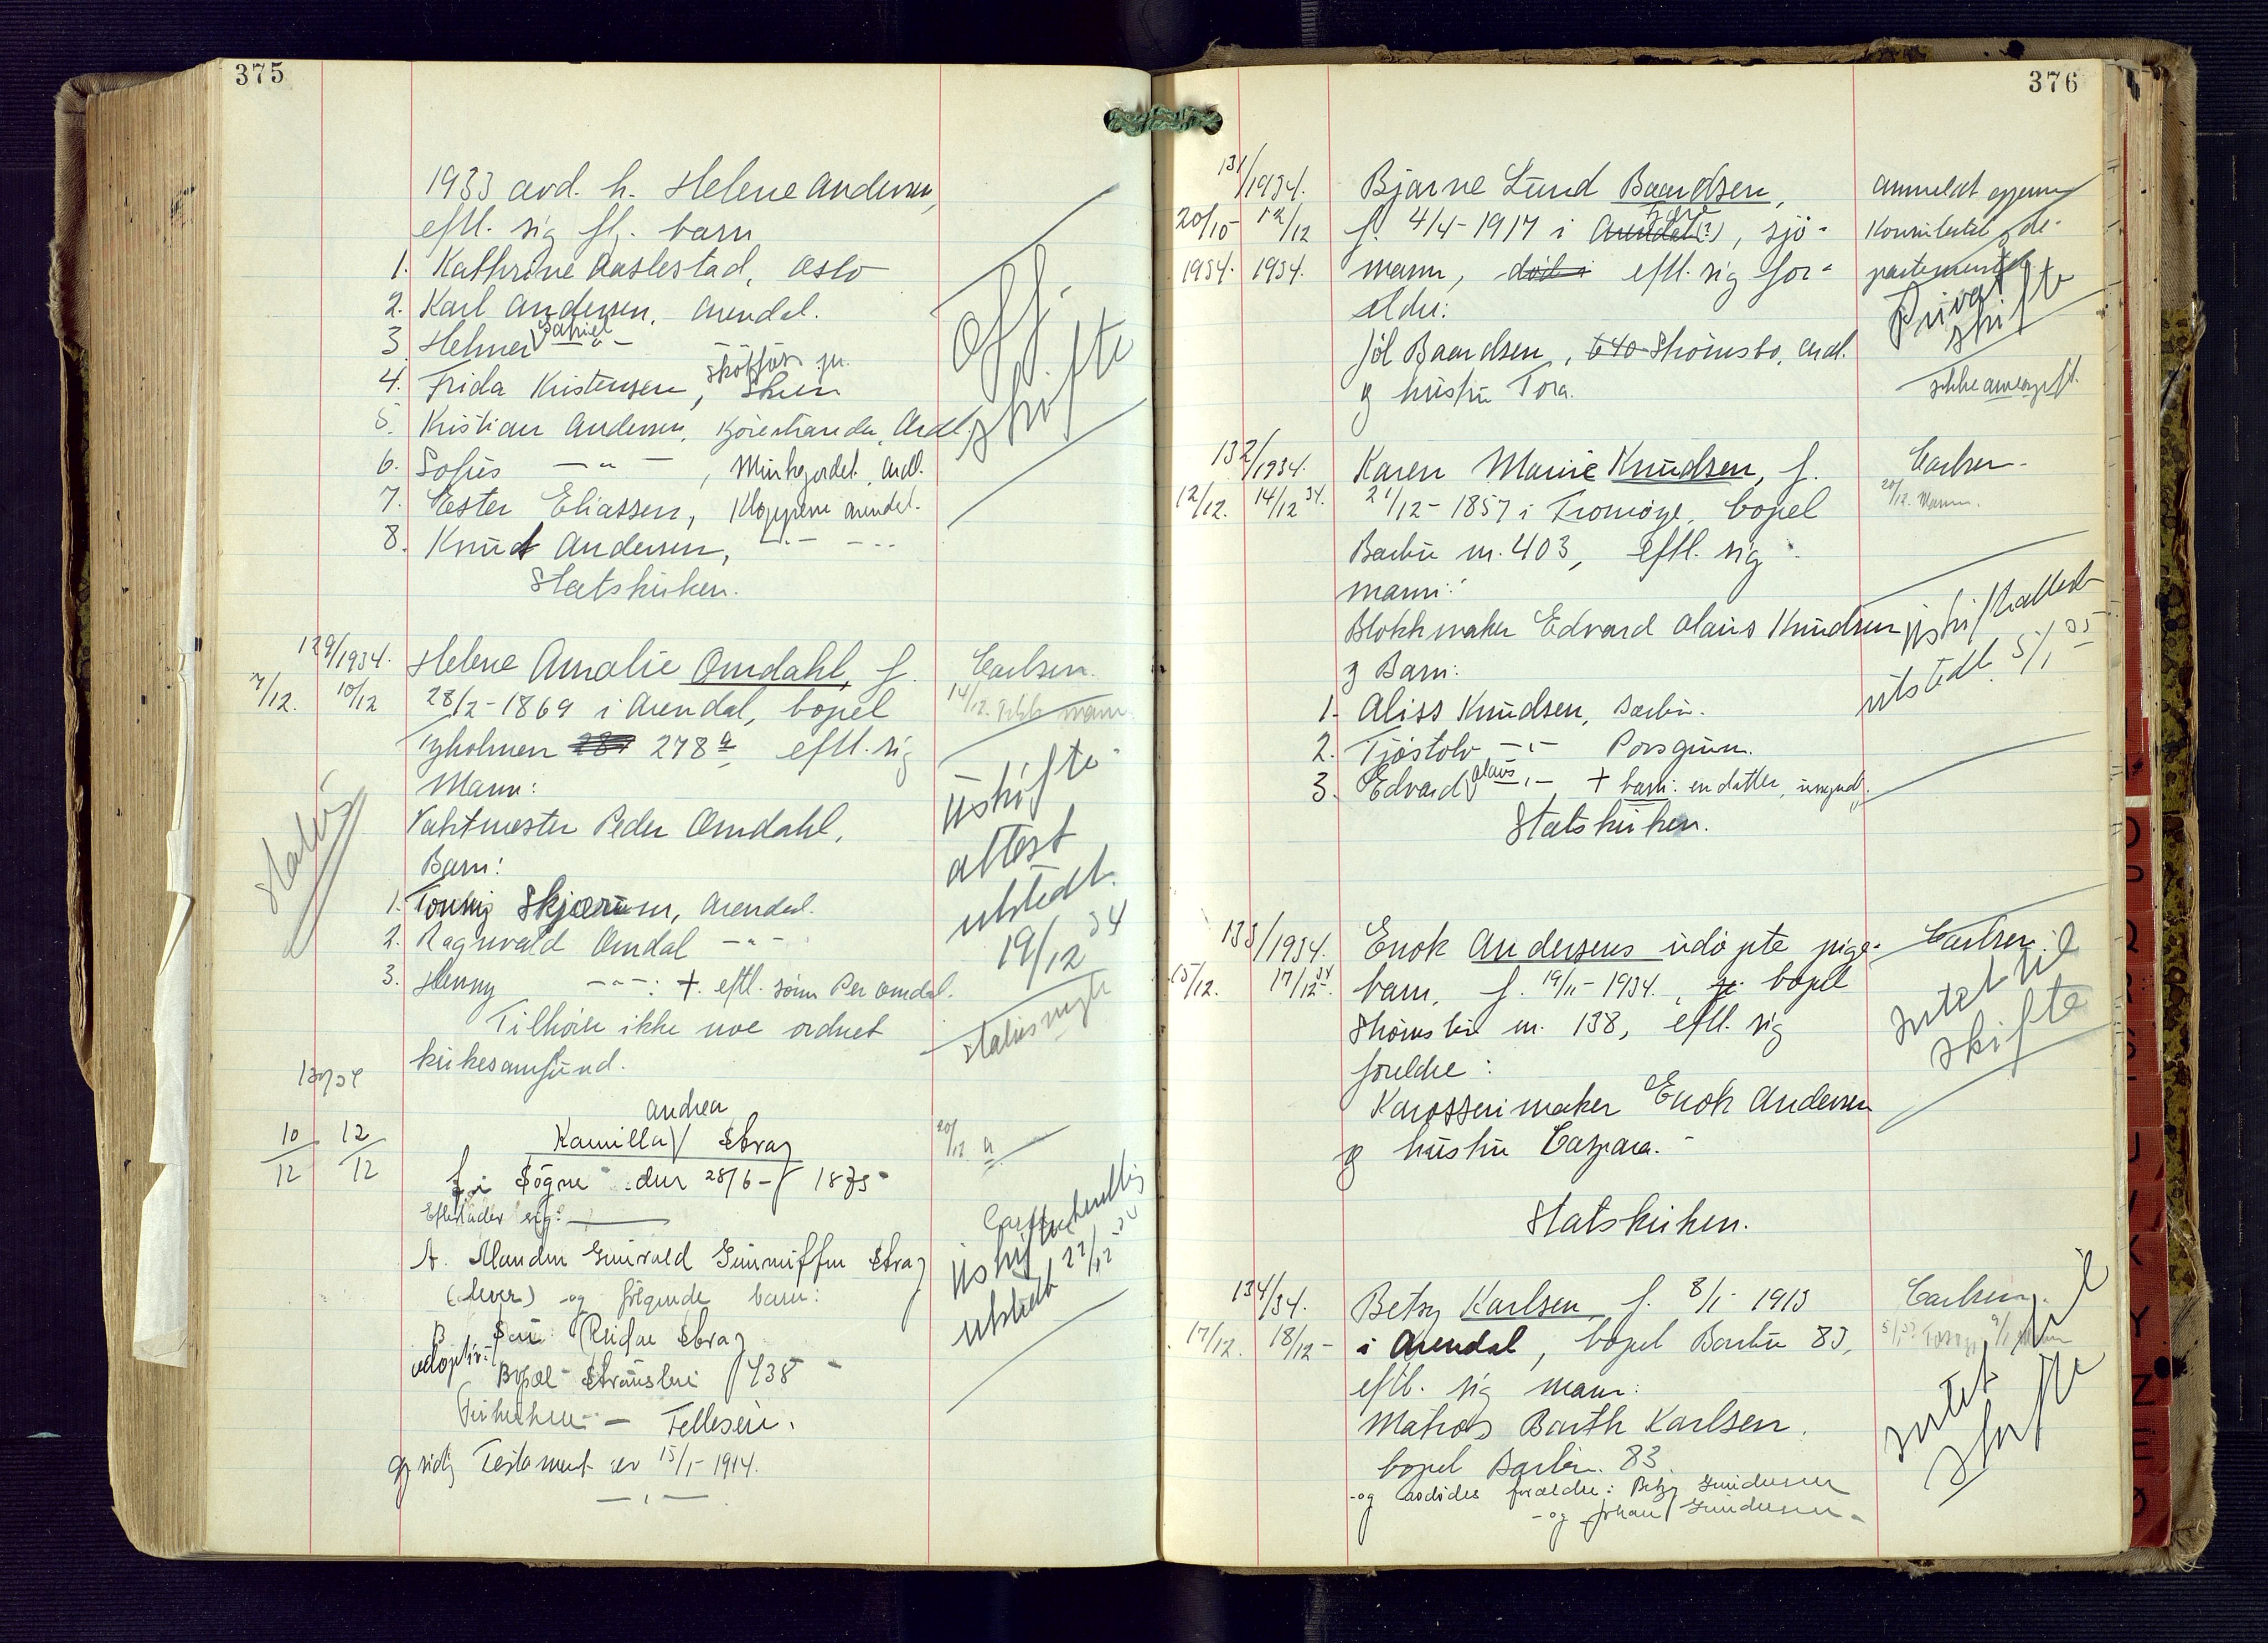 375
1933 avd. h. Helene Andersen,
eftl. sig fl. barn
1. Kathrine Aaslestad, Oslo
2. Karl Andersen, Arendal.
3. Helmer Daniel — " —
4. Frida Kristensen, Skien
5. Kristian Andersen, Arendl.
6. Sofus — " — , Myrkjordet, Arndl.
7. Ester Eliassen, Kloppene Arendal.
8. Knut Andersen, — " — — " —
Statskirken.
Off.
skifte
129/1934.
7/12. 10/12
Helene Amalie Omdahl, f.
28/2 - 1869 i Arendal, bopel
Tyholmen 278 a, eftl. sig
Mann:
Vaktmester Peder Omdahl,
Barn:
1. Skjærum, Arendal.
2. Ragnvald Omdal — " —
3. Henny — " — : + eftl. sønn Per Omdal.
Tilhører ikke noe ordnet
kirkesamfund.
Carlsen.
14/12.
Uskifte
attest
utstedt.
19/12 34
130/34
10/12 12/12
Andrea
Kamilla Stray
f. i Søgne den 28/6 - 1875
Efterlader sig:
(lever) og følgende barn:
adoptiv:
Reidar Stray
Bopæl 438
Gjensidig Testament av 15/1 - 1914.
20/12
utstedt 22/12 34
376
131/1934.
20/10 1934. 12/12 1934.
Bjarne Lund Baardsen,
f. 4/4 - 1917 i Arendal (?), sjø-
mann, død i eftl. sig for-
eldre:
Jol Baardsen, 640 Strømsbo, Arndl.
og hustru Tora.
anmeldt gjennem
Konsulatet og de-
partementet
Privat
skifte
132/1934.
12/12. 14/12 34.
Karen Marie Knudsen, f.
21/12 - 1857 i Tromøye, bopel
Barbu nr. 403, eftl. sig
mann:
Blokkmaker Edvard Olaus Knudsen
og Barn:
1. Aliss Knudsen, Barbu.
2. Tjøstolv — " — Porsgrunn.
3. Edvard Olaus — " — + barn: en datter, umynd.
Statskirken.
Carlsen.
20/12. Mann.
Uskifteattest
utstedt 5/1 35
133/1934.
15/12. 17/12 34.
Enok Andersens udøpte pige-
barn, f. 19/11 - 1934., bopel
Strømsbu nr. 138, eftl. sig
foreldre:
Karosserimaker Enok Andersen
og hustru Caspara.
Statskirken.
Carlsen.
Intet til
skifte
134/34.
17/12. 18/12
Betsy Karlsen, f. 8/1 - 1913
i Arendal, bopel Barbu 83,
eftl. sig mann:
Matros Barth Karlsen.
bopel Barbu 83.
og avdødes foreldre: Betzy Gundersen
og Johan Gundersen
Carlsen.
Intet til
skifte